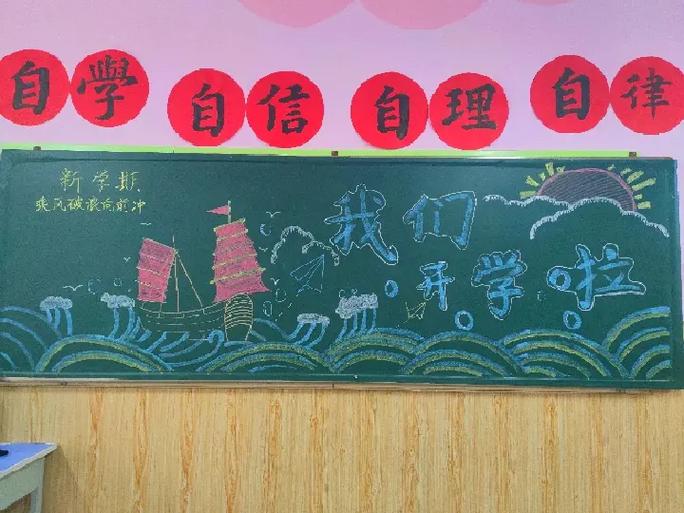 自學 自信 自理 自律
新学期
乘风破浪向前冲
我们
开学啦